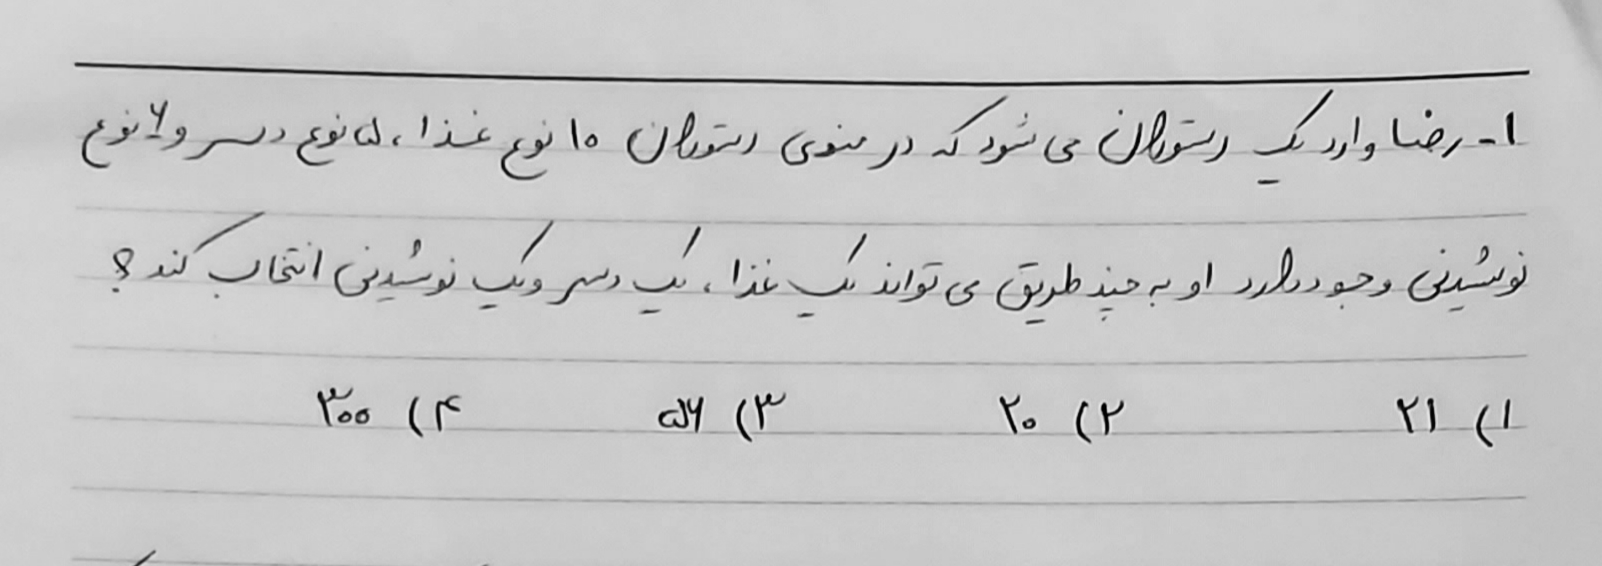 ۱- رضا وارد یک رستوران می شود که در منوی رستوران ۱۰ نوع غذا، ۵ نوع دسر و ۶ نوع
نوشیدنی وجود دارد او به چند طریق می تواند یک غذا، یک دسر و یک نوشیدنی انتخاب کند؟
۱) ۲۱ ۲) ۲۰ ۳) ۵۶ ۴) ۳۰۰